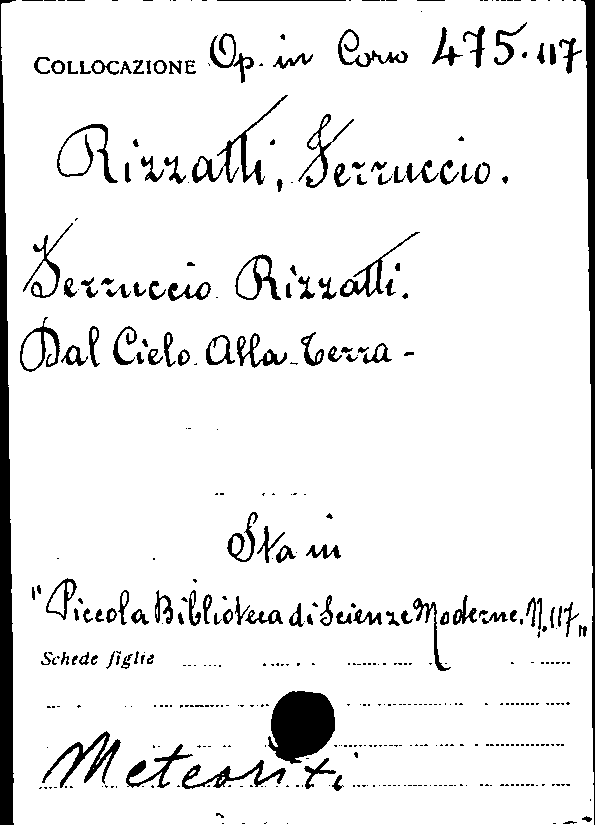 COLLOCAZIONE Op. in Corso 475.117
Rizzatti, Ferruccio.
Ferruccio Rizzatti.
Dal Cielo Alla Terra -
Sta in
"Piccola Biblioteca di Scienze Moderne. N. 117"
Schede figlie
Meteoriti